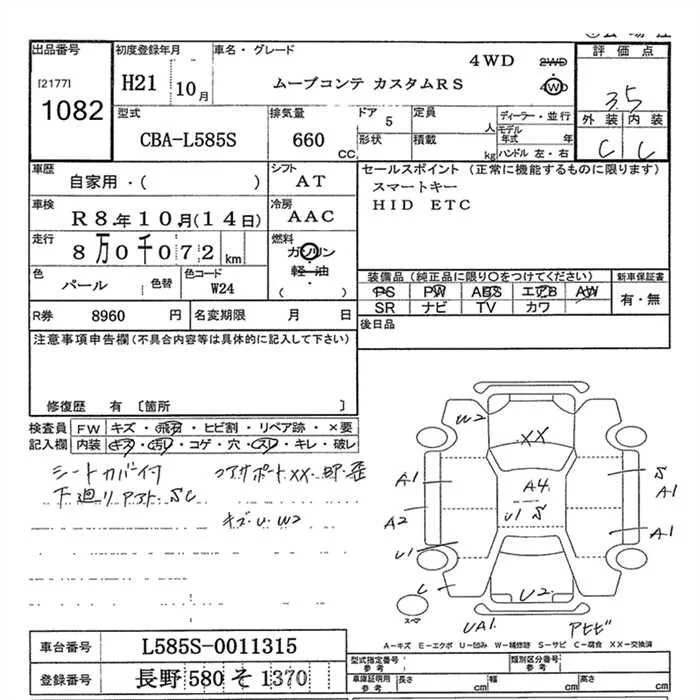 出品番号 初度登録年月 車名・グレード 4WD 2WD 評価点
[2177] H21 10月 ムーブコンテ カスタムRS 4WD 3.5
1082
型式 排気量 ドア 5 定員 人 ディーラー・並行 外装 内装
CBA-L585S 660 CC 形状 積載 kg モデル年式 年 ハンドル 左・右 C C
車歴 自家用・( ) シフト AT セールスポイント (正常に機能するものに限ります)
車検 R8.年10月(14日) 冷房 AAC スマートキー
HID ETC
走行 8万0千072 km 燃料 ガソリン
軽油
( )
色 パール 色替 色コード W24 装備品(純正品に限り○をつけてください) 新車保証書
PS PW ABS エアB AW 有・無
SR ナビ TV カワ
R券 8960 円 名変期限 月 日 後日品
注意事項申告欄(不具合内容等は具体的に記入して下さい)
修復歴 有 〔箇所 〕
検査員 FW キズ・飛石・ヒビ割・リペア跡・×要
記入欄 内装 キズ・汚れ・コゲ・穴・スレ・キレ・破レ
シートカバー付 コアサポートXX・
下廻リ SC
キズ・U・W2
W2
XX
A1 A4 S
A1
A2 U1 S A1
U1
U U2
スペア UA1 アヒビ
A-キズ E-エクボ U-凹み W-補修跡 S-サビ C-腐食 XX-交換済
車台番号 L585S-0011315
登録番号 長野 580 そ 1370
型式指定番号 参考 類別区分番号 参考
車庫証明用 参考 長さ cm 幅 cm 高さ cm